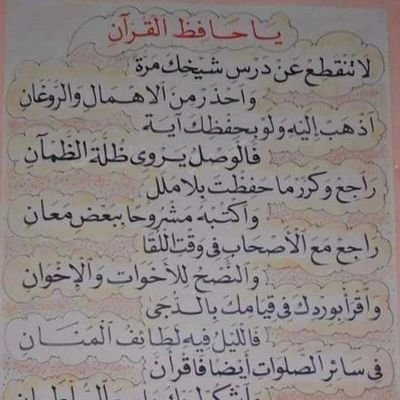 يا حافظ القرآن
لا تنقطع عن درس شيخك مرة
واحذر من الاهمال والروغان
اذهب إليه ولو بحفظك آية
فالوصل يروى ظلة الظمآن
راجع وكرر ما حفظت بلا ملل
واكتبه مشروحا ببعض معان
راجع مع الأصحاب في وقت اللقا
والنصح للأخوات والإخوان
واقرأ بوردك في قيامك بالدجى
فالليل فيه لطائف المنان
في سائر الصلوات أيضا فاقرأن